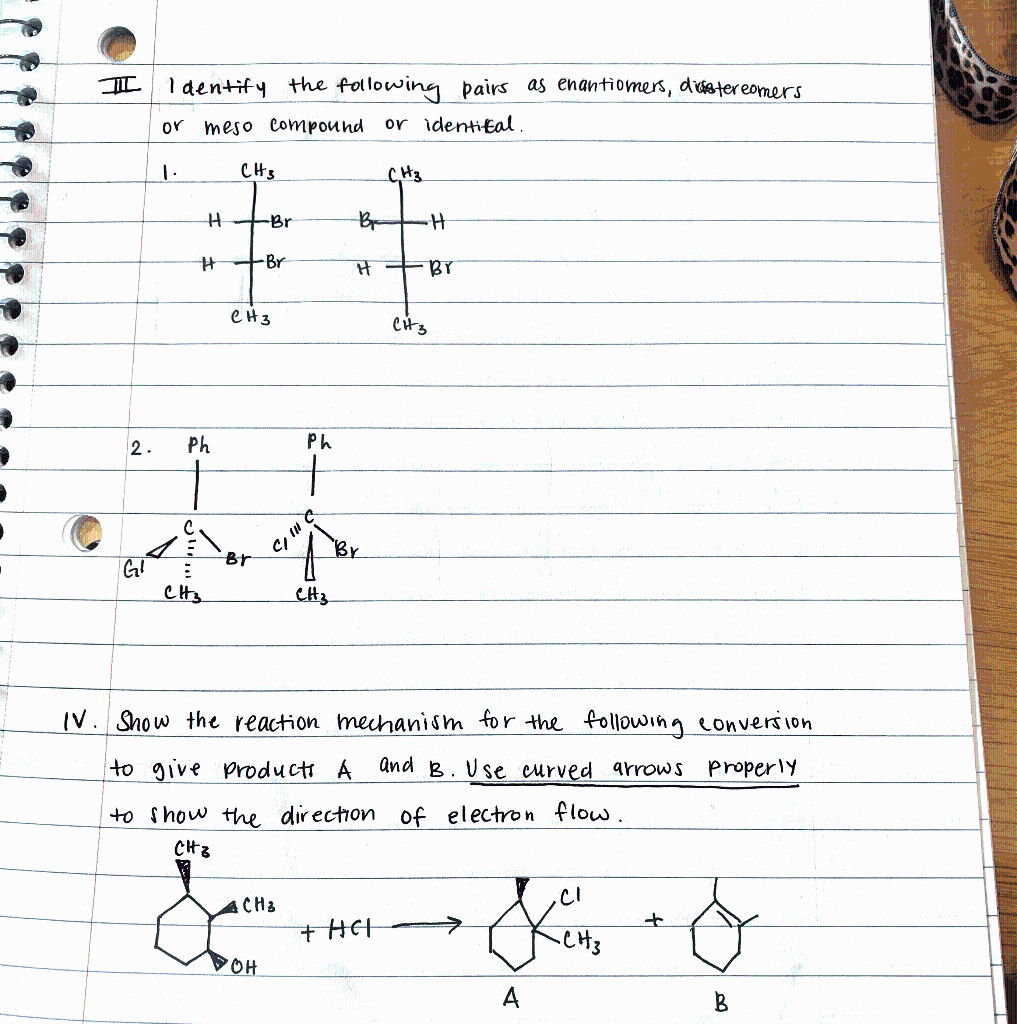 III Identify the following pairs as enantiomers, diastereomers
or meso compound or identical.
1. CH3 CH3
H Br Br H
H Br H Br
CH3 CH3
2. Ph Ph
C C
Cl Br Cl Br
CH3 CH3
IV. Show the reaction mechanism for the following conversion
to give products A and B. Use curved arrows properly
to show the direction of electron flow.
CH3
CH3 Cl
+ HCl → +
CH3
OH
A B